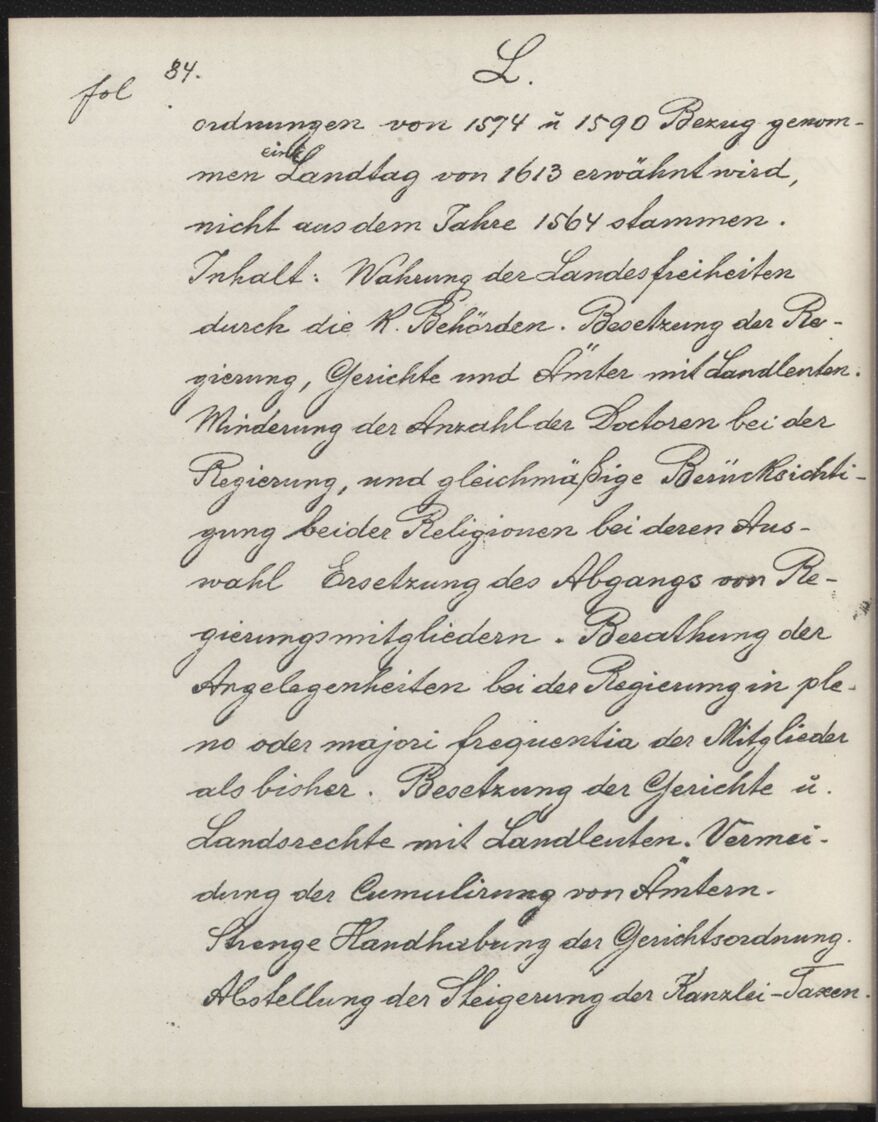 fol 84. L.
ordnungen von 1574 ŭ 1590 Bezug genom-
men eine Landtag von 1613 erwähnt wird,
nicht aus dem Jahre 1564 stammen.
Inhalt: Wahrung der Landesfreiheiten
durch die K. Behörden. Besetzung der Re-
gierung, Gerichte und Ämter mit Landleuten.
Minderung der Anzahl der Doctoren bei der
Regierung, und gleichmäßige Berücksichti-
gung beider Religionen bei deren Aus-
wahl Ersetzung des Abgangs von Re-
gierungsmitgliedern. Berathung der
Angelegenheiten bei der Regierung in ple-
no oder majori frequentia der Mitglieder
als bisher. Besetzung der Gerichte ŭ.
Landsrechte mit Landleuten. Vermei-
dung der Cumulirung von Ämtern.
Strenge Handhabung der Gerichtsordnung.
Abstellung der Steigerung der Kanzlei-Taxen.